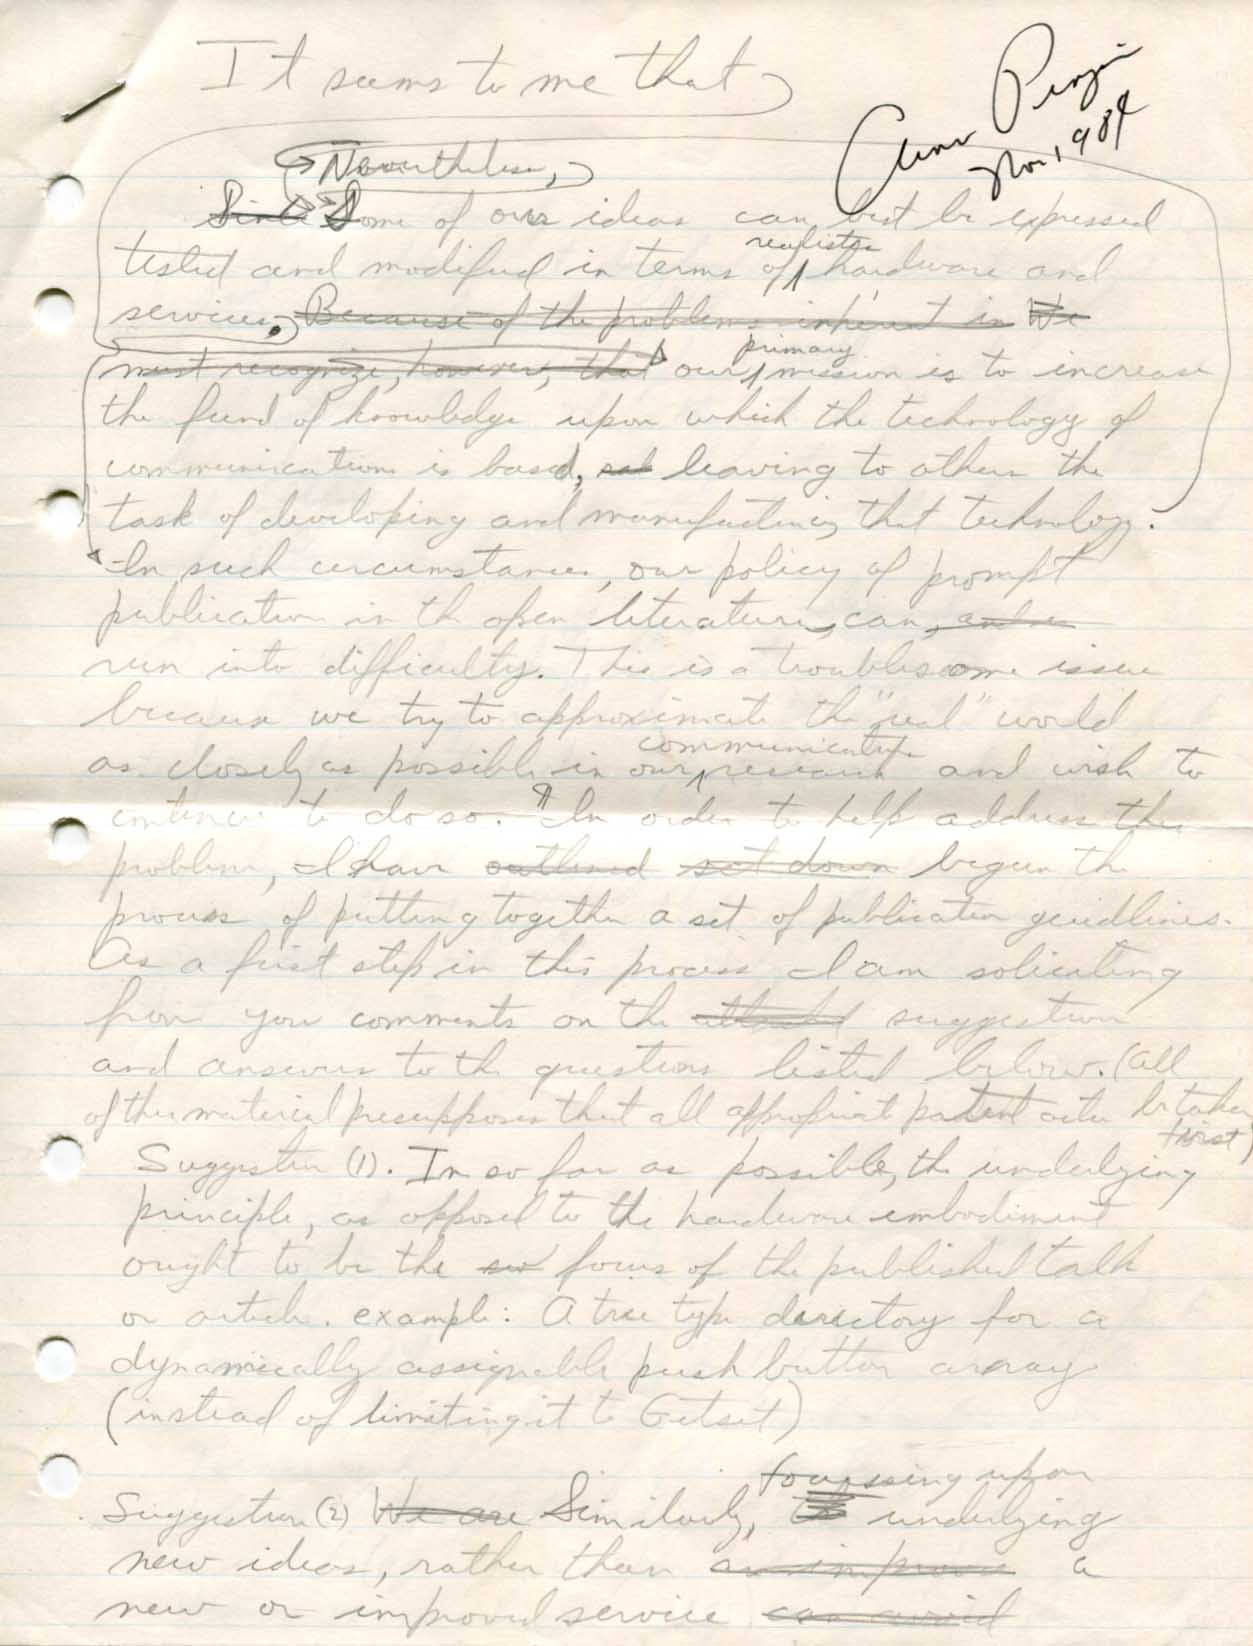 It seems to me that
Arno Penzias
Nov 1984
Nevertheless,
Since Some of our ideas can best be expressed
realistic
tested and modified in terms of hardware and
services, Because of the problems inherent in We
primary
must recognize, however, that our mission is to increase
the fund of knowledge upon which the technology of
communications is based, leaving to others the
task of developing and manufacturing that technology.
In such circumstances, our policy of prompt
publication in the open literature, can,
run into difficulty. This is a troublesome issue
because we try to approximate the "real" world
communications
as closely as possible in our research and wish to
continue to do so. ¶ In order to help address this
problem, I have outlined set down begun the
process of putting together a set of publication guidlines.
As a first step in this process I am soliciting
from you comments on the attached suggestions
and answers to the questions listed below. (All
of this material presupposes that all appropriate patent actions be taken
first)
Suggestion (1). In so far as possible, the underlying
principle, as opposed to the hardware embodiment
ought to be the focus of the published talk
or article. example: A tree type directory for a
dynamically assignable push button array
(instead of limiting it to Getset)
focussing upon
Suggestion (2) We are Similarly, underlying
new ideas, rather than an improve a
new or improved service can avoid